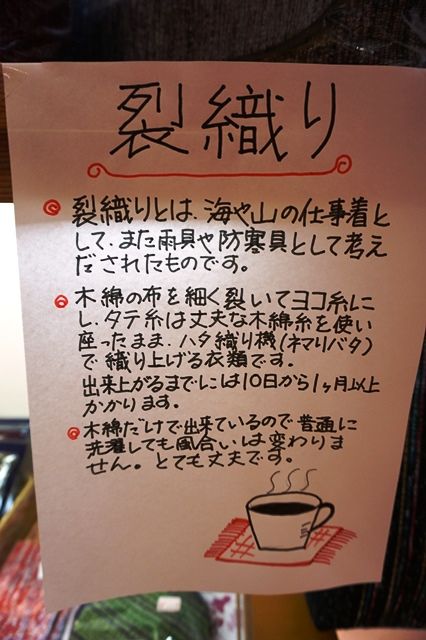 裂織り
裂織りとは、海や山の仕事着と
して、また雨具や防寒具として考え
だされたものです。
木綿の布を細く裂いてヨコ糸に
し、タテ糸は丈夫な木綿糸を使い
座ったまま、ハタ織り機(ネマリバタ)
で織り上げる衣類です。
出来上がるまでには10日から1ヶ月以上
かかります。
木綿だけで出来ているので普通に
洗濯しても風合いは変わりま
せん。とても丈夫です。